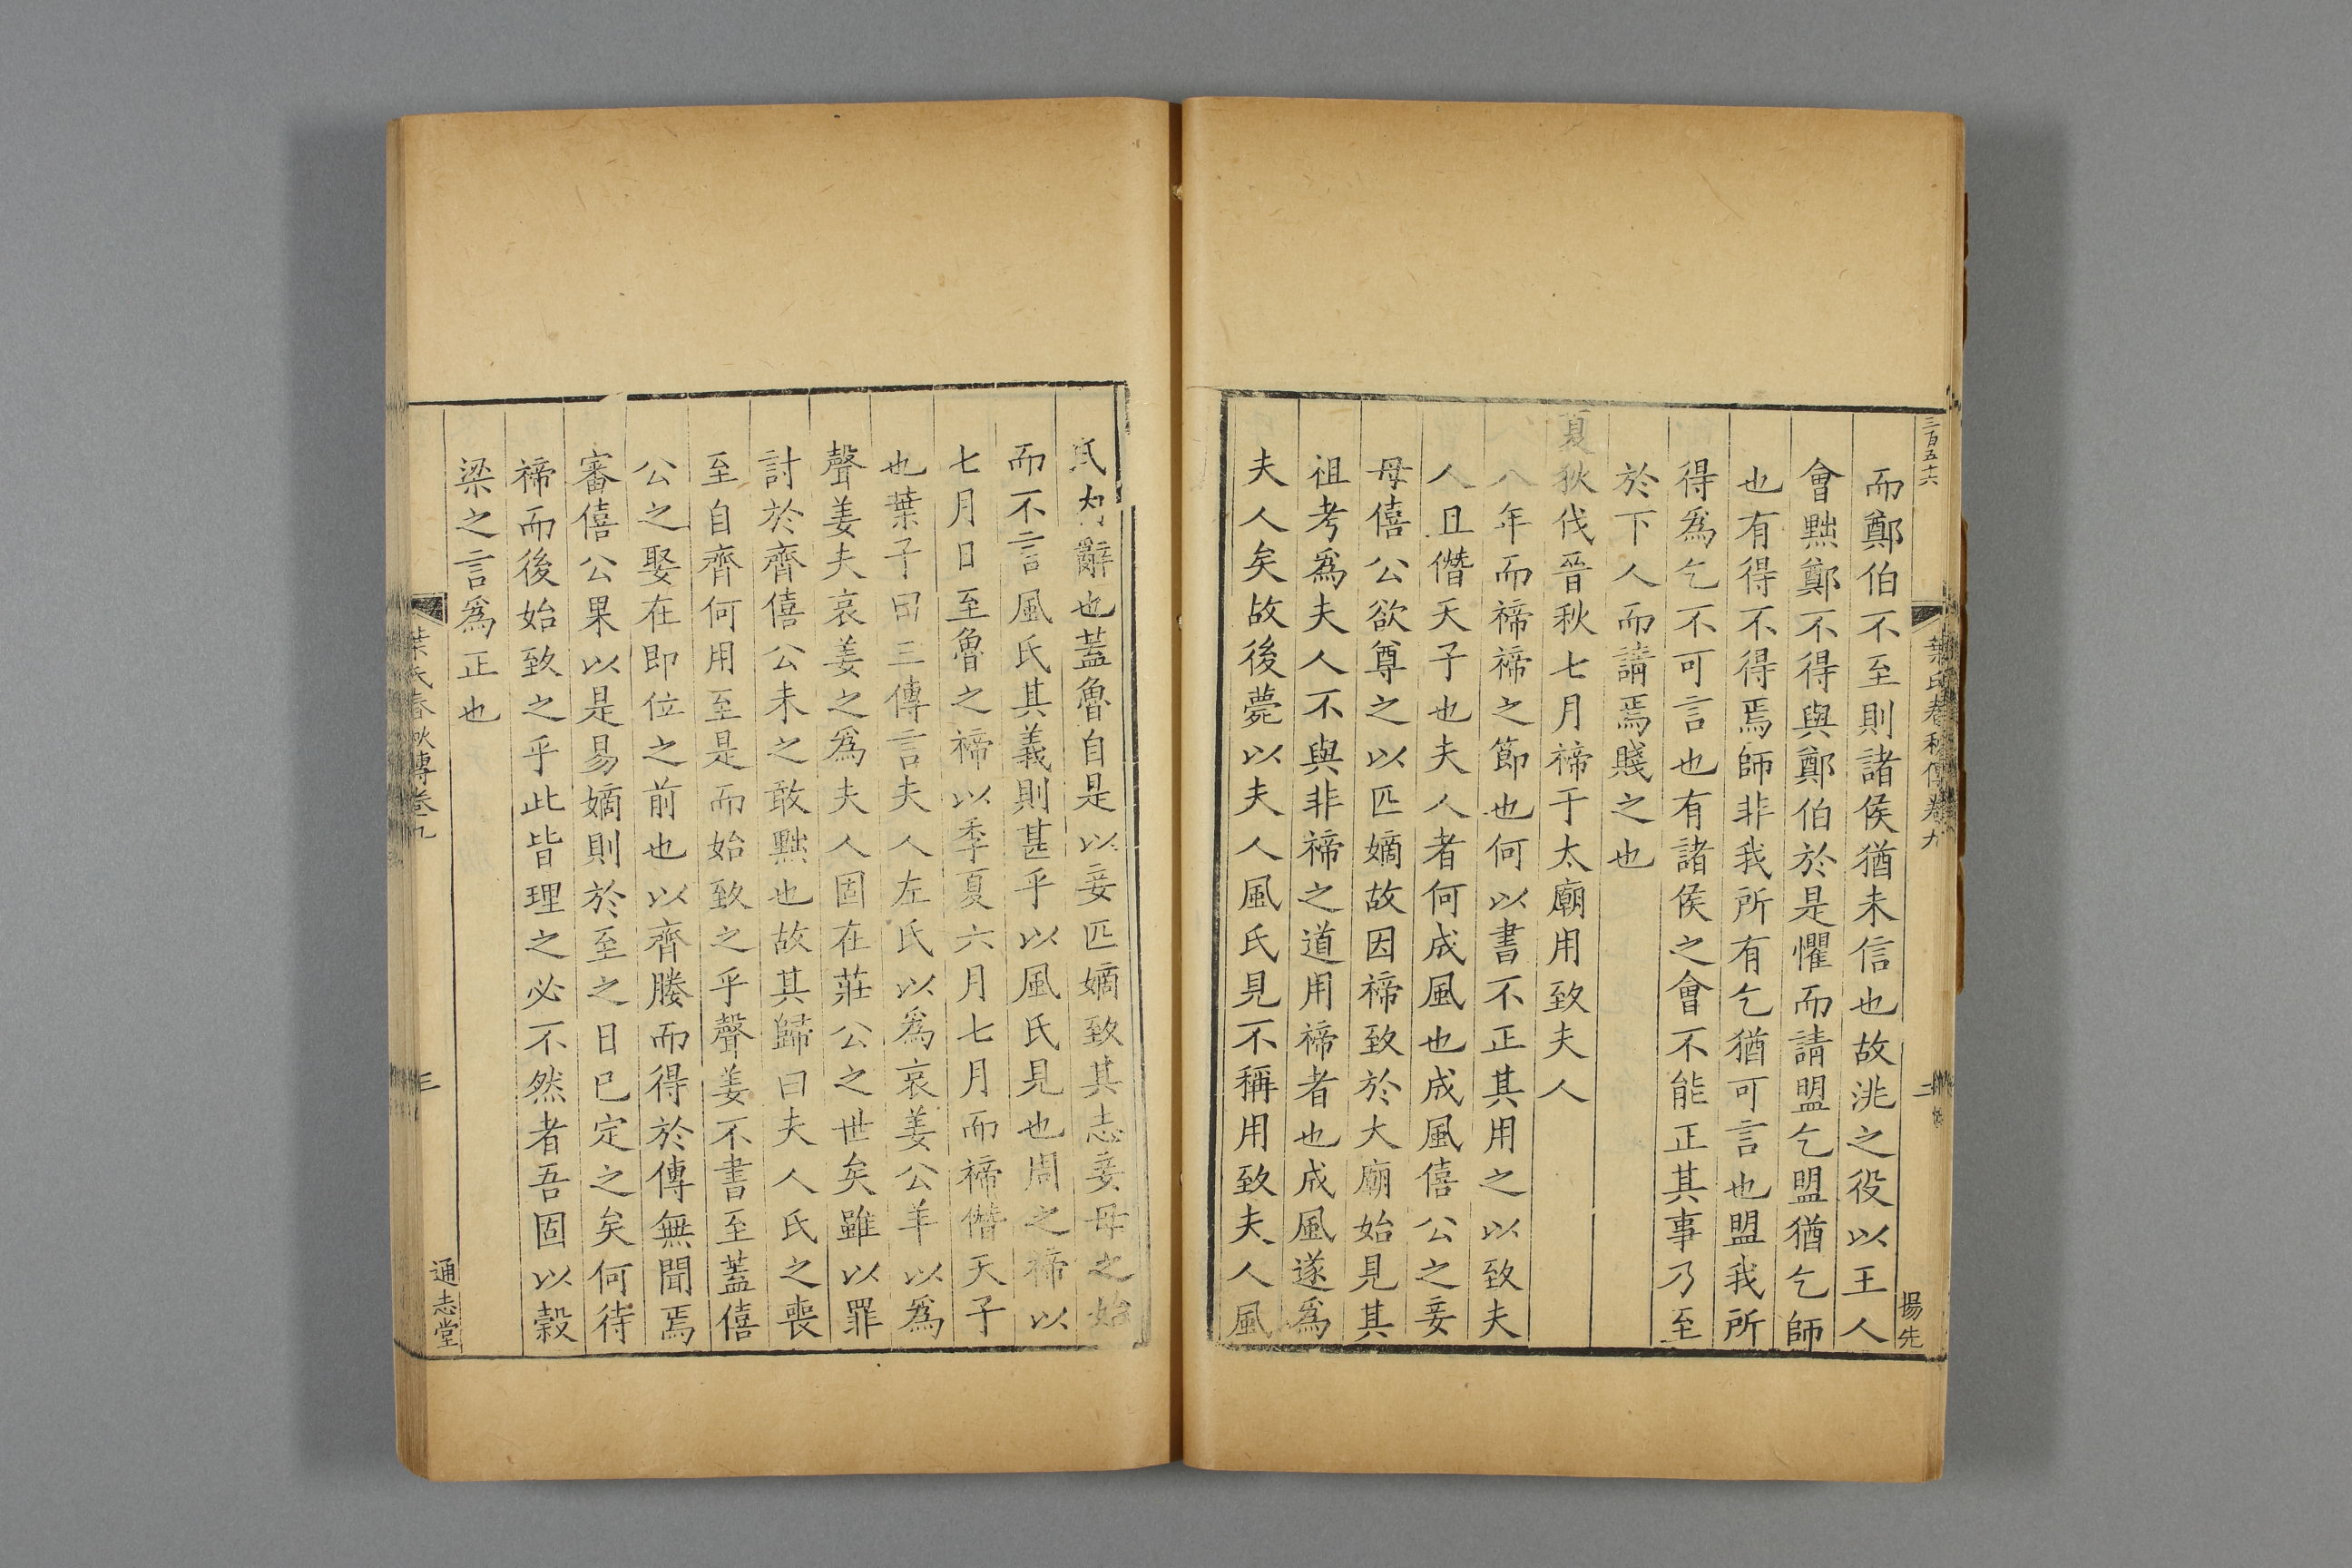 三百五十六
葉氏春秋傳卷九
二
楊先
而鄭伯不至則諸侯猶未信也故洮之役以王人
會黜鄭不得與鄭伯於是懼而請盟乞盟猶乞師
也有得不得焉師非我所有乞猶可言也盟我所
得爲乞不可言也有諸侯之會不能正其事乃至
於下人而請焉賤之也
夏狄伐晉秋七月禘于太廟用致夫人
八年而禘禘之節也何以書不正其用之以致夫
人且僭天子也夫人者何成風也成風僖公之妾
母僖公欲尊之以匹嫡故因禘致於大廟始見其
祖考爲夫人不與非禘之道用禘者也成風遂爲
夫人矣故後薨以夫人風氏見不稱用致夫人風
氏内辭也蓋魯自是以妾匹嫡致其志妾母之始
而不言風氏其義則甚乎以風氏見也周之禘以
七月日至魯之禘以季夏六月七月而禘僭天子
也葉子曰三傳言夫人左氏以爲哀姜公羊以爲
聲姜夫哀姜之爲夫人固在莊公之世矣雖以罪
討於齊僖公未之敢黜也故其歸曰夫人氏之喪
至自齊何用至是而始致之乎聲姜不書至蓋僖
公之娶在即位之前也以齊媵而得於傳無聞焉
審僖公果以是易嫡則於至之日已定之矣何待
禘而後始致之乎此皆理之必不然者吾固以穀
梁之言爲正也
葉氏春秋傳卷九
三
通志堂